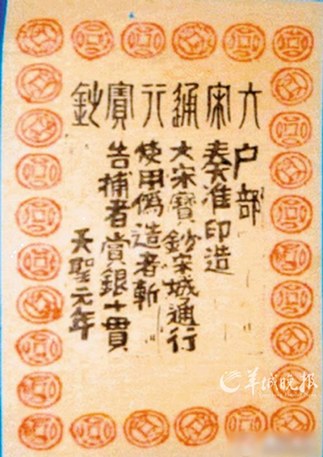 大宋通行寳鈔
户部
奏准印造
大宋寶鈔宋城通行
使用偽造者斬
告捕者賞銀十貫
天聖元年
羊城晚報